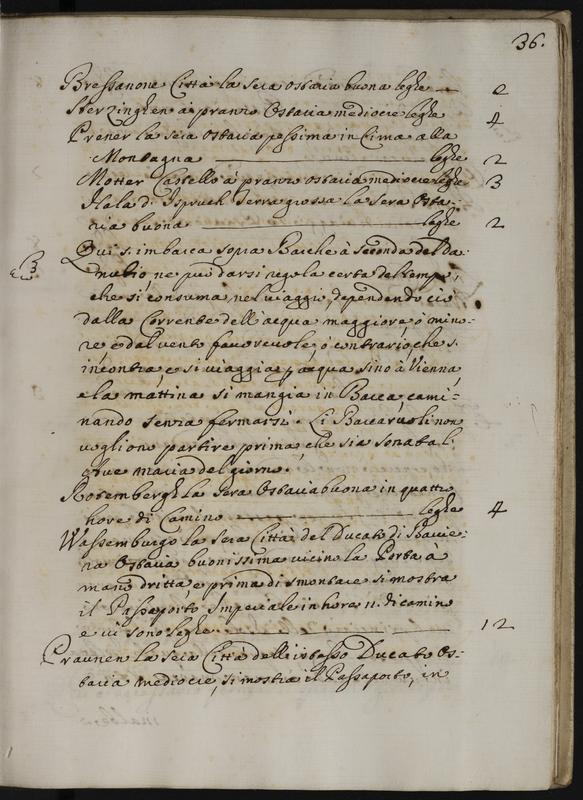 36.
Bressanone Città la sera Ostaria buona leghe 2
Sterzinghen à pranzo Ostaria mediocre leghe 4
Prener la sera Ostaria pessima in Cima alla
Montagna leghe 2
Motter Castello à pranzo Ostaria mediocre leghe 3
Hala di Ispruch Terra grossa la sera Osta-
ria buona leghe 2
Qui s'imbarca sopra Barche à seconda del Da-
nubio, ne può darsi regola certa del tempo,
che si consuma nel viaggio, dependendo ciò
dalla Corrente dell'acqua maggiore, ò mino-
re, e dal vento favorevole, ò contrario, che s'
incontra, e si viaggia p acqua sino à Vienna,
e la mattina si mangia in Barca, cami-
nando senza fermarsi. Li Barcaruoli non
vogliono partire prima, che sia sonata l'
Ave maria del giorno.
Rotembergh la sera Ostaria buona in quattro
hore di Camino leghe 4
Wassemburgo la sera Città del Ducato di Bavie-
ra Ostaria buonissima vicino la Porta a
mano dritta, e prima di smontare si mostra
il Passaporto Imperiale in hore 11. di camino
e vi sono leghe 12
Praunen la sera Città dell'istesso Ducato Os-
taria mediocre, si mostra il Passaporto, in